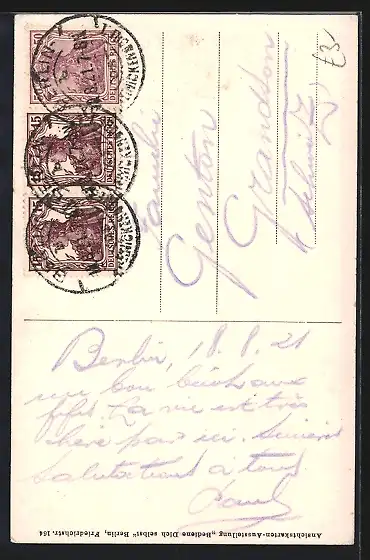 Famille
Genton
Grandson
Schweiz
£3-
BERLIN
DEUTSCHES REICH
15
DEUTSCHES REICH
15
DEUTSCHES REICH
Berlin, 18.8.21
un bon
fils. La vie est très
chère par ici.
salutations à tous
Ansichtskarten-Ausstellung „Bediene Dich selbst" Berlin, Friedrichstr. 164